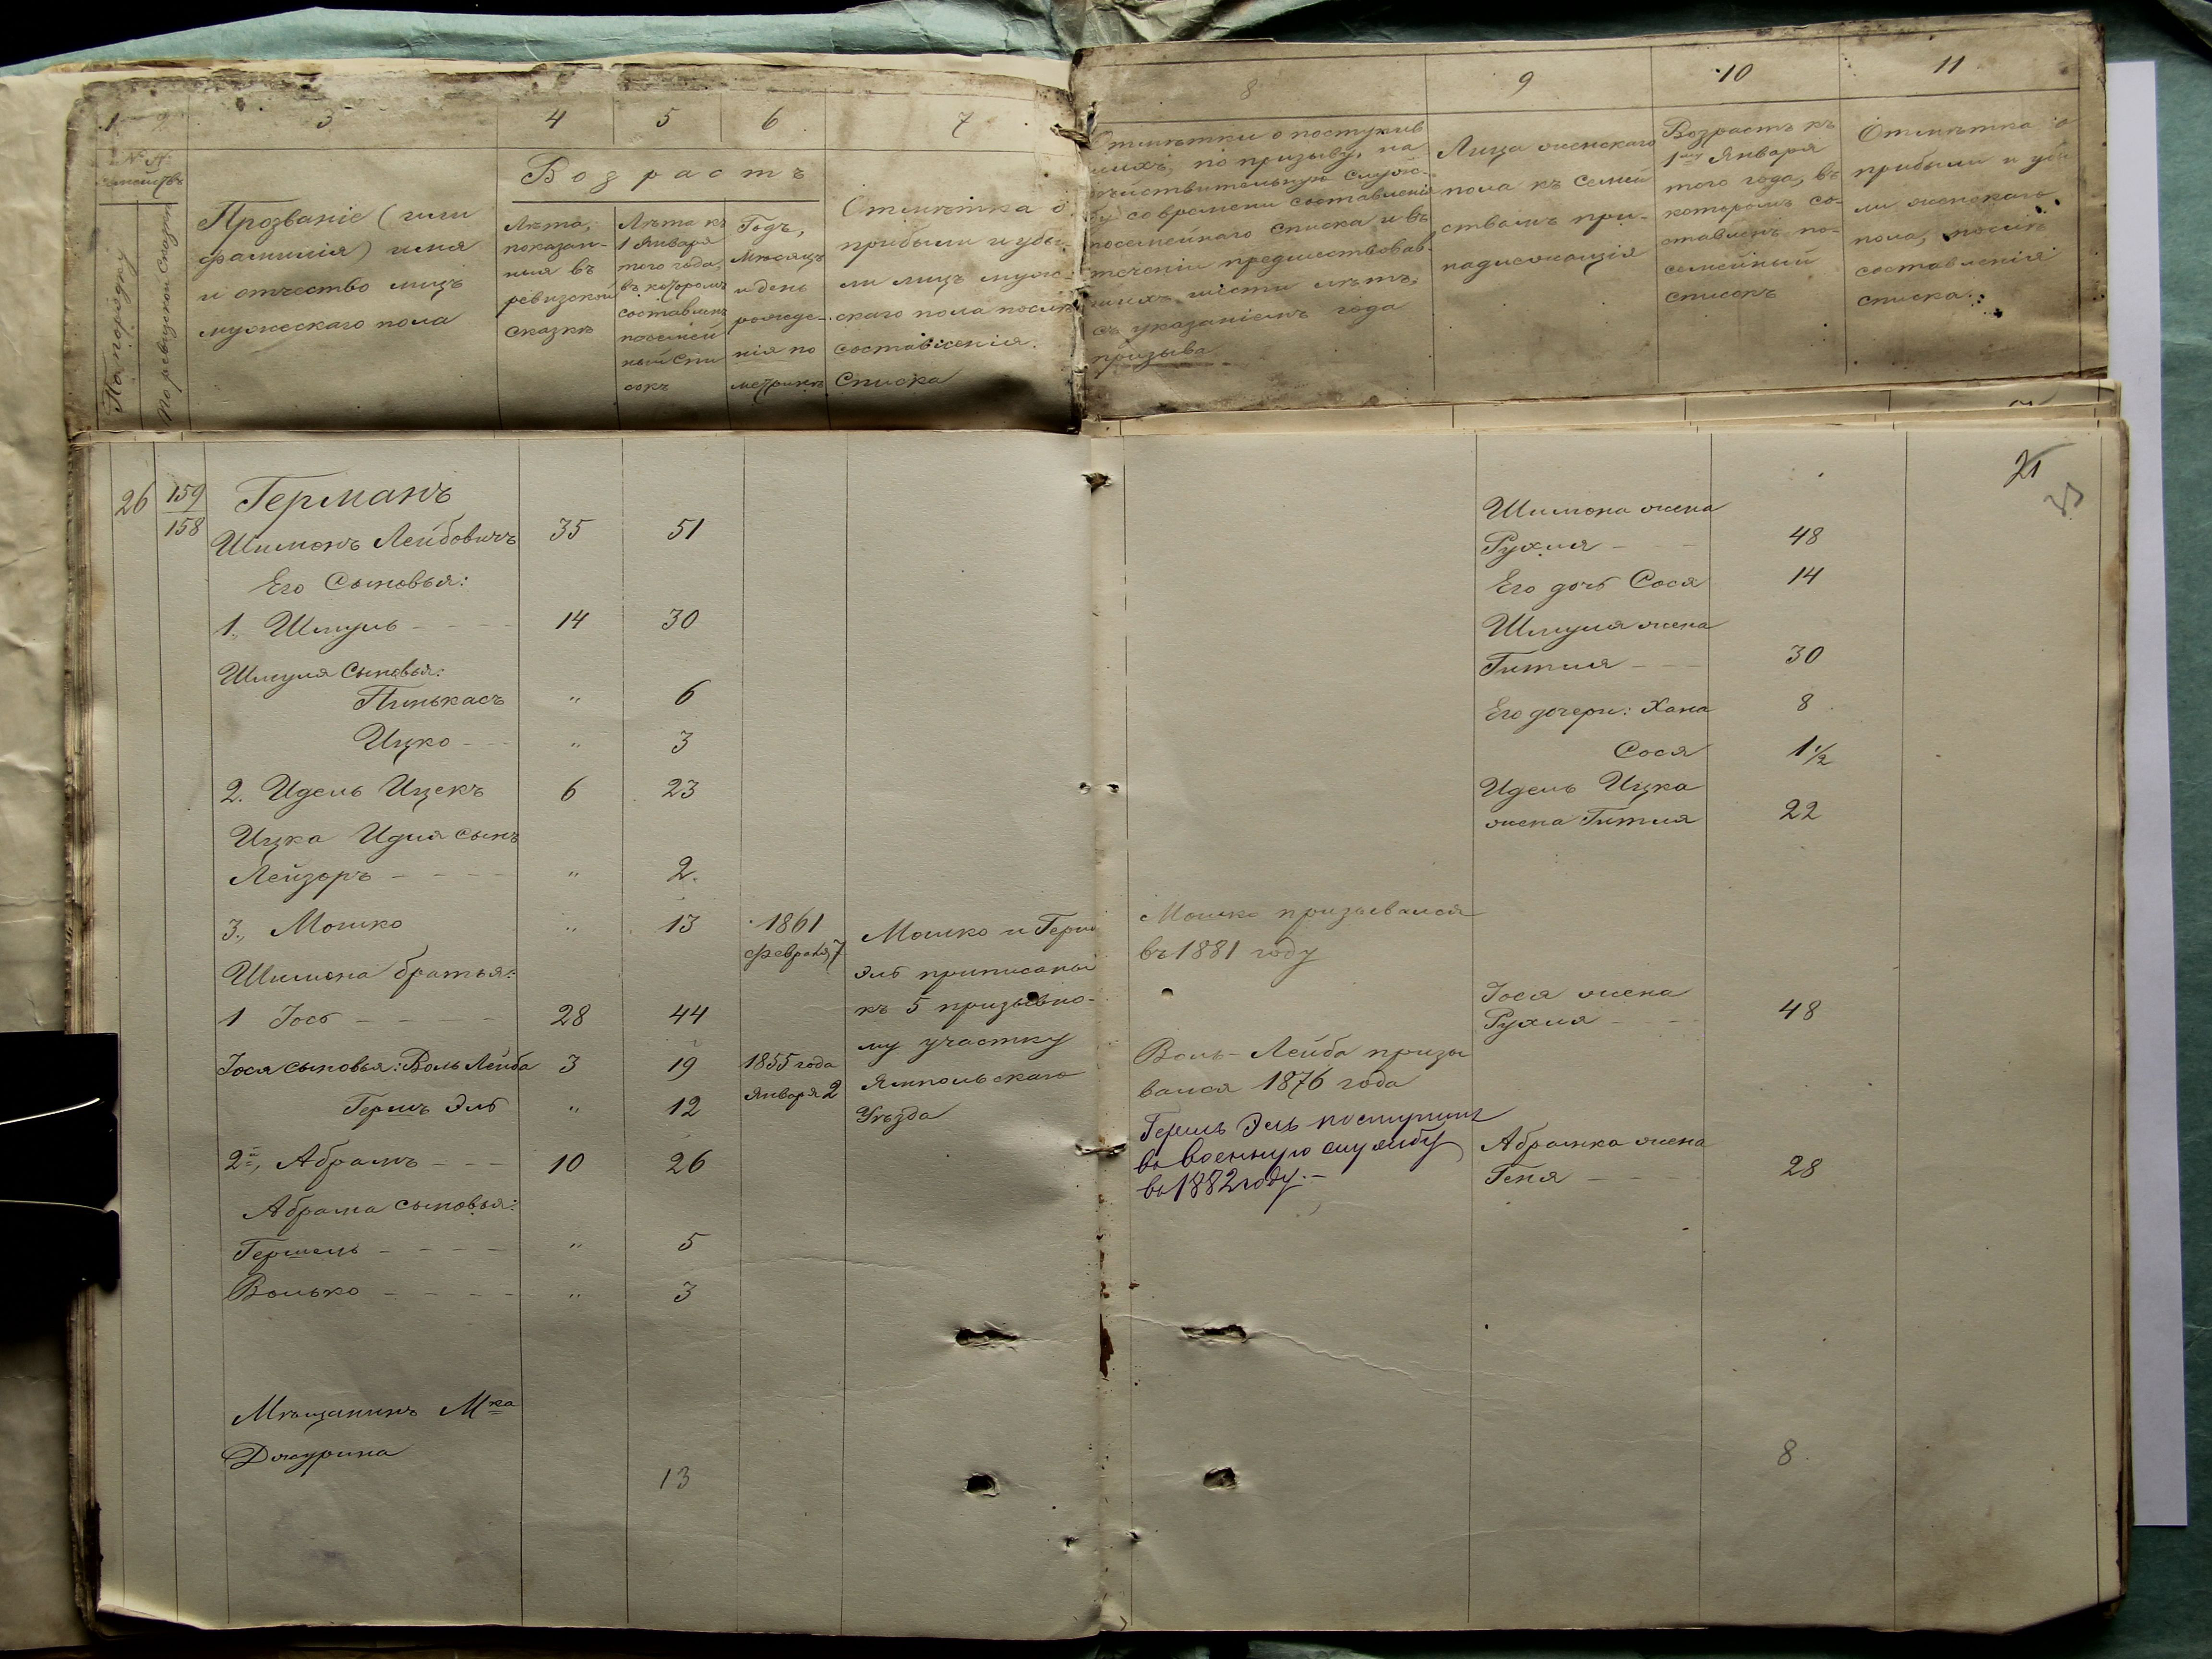 1 2 3 4 5 6 7
№ №
семействъ
По порядку
По ревизской сказкѣ
Прозваніе (или
фамилія) имя
и отчество лицъ
мужескаго пола
Возрастъ
Лѣта,
показан-
ныя въ
ревизской
сказкѣ
Лѣта къ
1 Января
того года,
въ которомъ
составленъ
посемей
ный спи
сокъ
Годъ,
мѣсяцъ
и день
рожде-
нія по
метрикѣ
Отмѣтка о
прибыли и убы-
ли лицъ муже-
скаго пола послѣ
составленія
списка
8 9 10 11
Отмѣтки о поступив
шихъ, по призыву, на
дѣйствительную служ-
бу со времени составленія
посемейнаго списка и въ
теченіи предшествовав-
шихъ шести лѣтъ,
съ указаніемъ года
призыва
Лица женскаго
пола къ семей
ствамъ при-
надлежащія
Возрастъ къ
1му Января
того года, въ
которомъ со-
ставленъ по-
семейный
списокъ
Отмѣтка о
прибыли и убы
ли женскаго
пола, послѣ
составленія
списка.
21
26 159 Германъ
158 Шимонъ Лейбовичъ 35 51
Его Сыновья:
1., Шмуль - - - - 14 30
Шмуля Сыновья:
Пинькасъ " 6
Ицко - - " 3
2. Идель Ицекъ 6 23
Ицка Идля сынъ
Лейзоръ - - - - " 2.
3., Мошко " 13 1861
февраля 7
Шимона братья:
1 Іось - - - - 28 44
Іося сыновья: Воль Лейба 3 19 1855 года
Января 2
Гершъ Эль " 12
2й, Абрамъ - - - 10 26
Абрама сыновья:
Гершель - - - - " 5
Волько - - - - " 3
Мѣщанинъ Мка
Джурина
13
Мошко и Герш
эль приписаны
къ 5 призывно-
му участку
Ямпольскаго
Уѣзда
Мошко призывался
въ 1881 году
Воль-Лейба призы
вался 1876 года
Гершъ Эль поступилъ
въ военную службу
въ 1882 году. -
Шимона жена
Рухля - - - 48
Его дочь Сося 14
Шмуля жена
Гитля - - - 30
Его дочери: Хана 8
Сося 1 1/2
Идель Ицка
жена Гитля 22
Іося жена
Рухля - - - 48
Абрамка жена
Геня - - - - 28
8